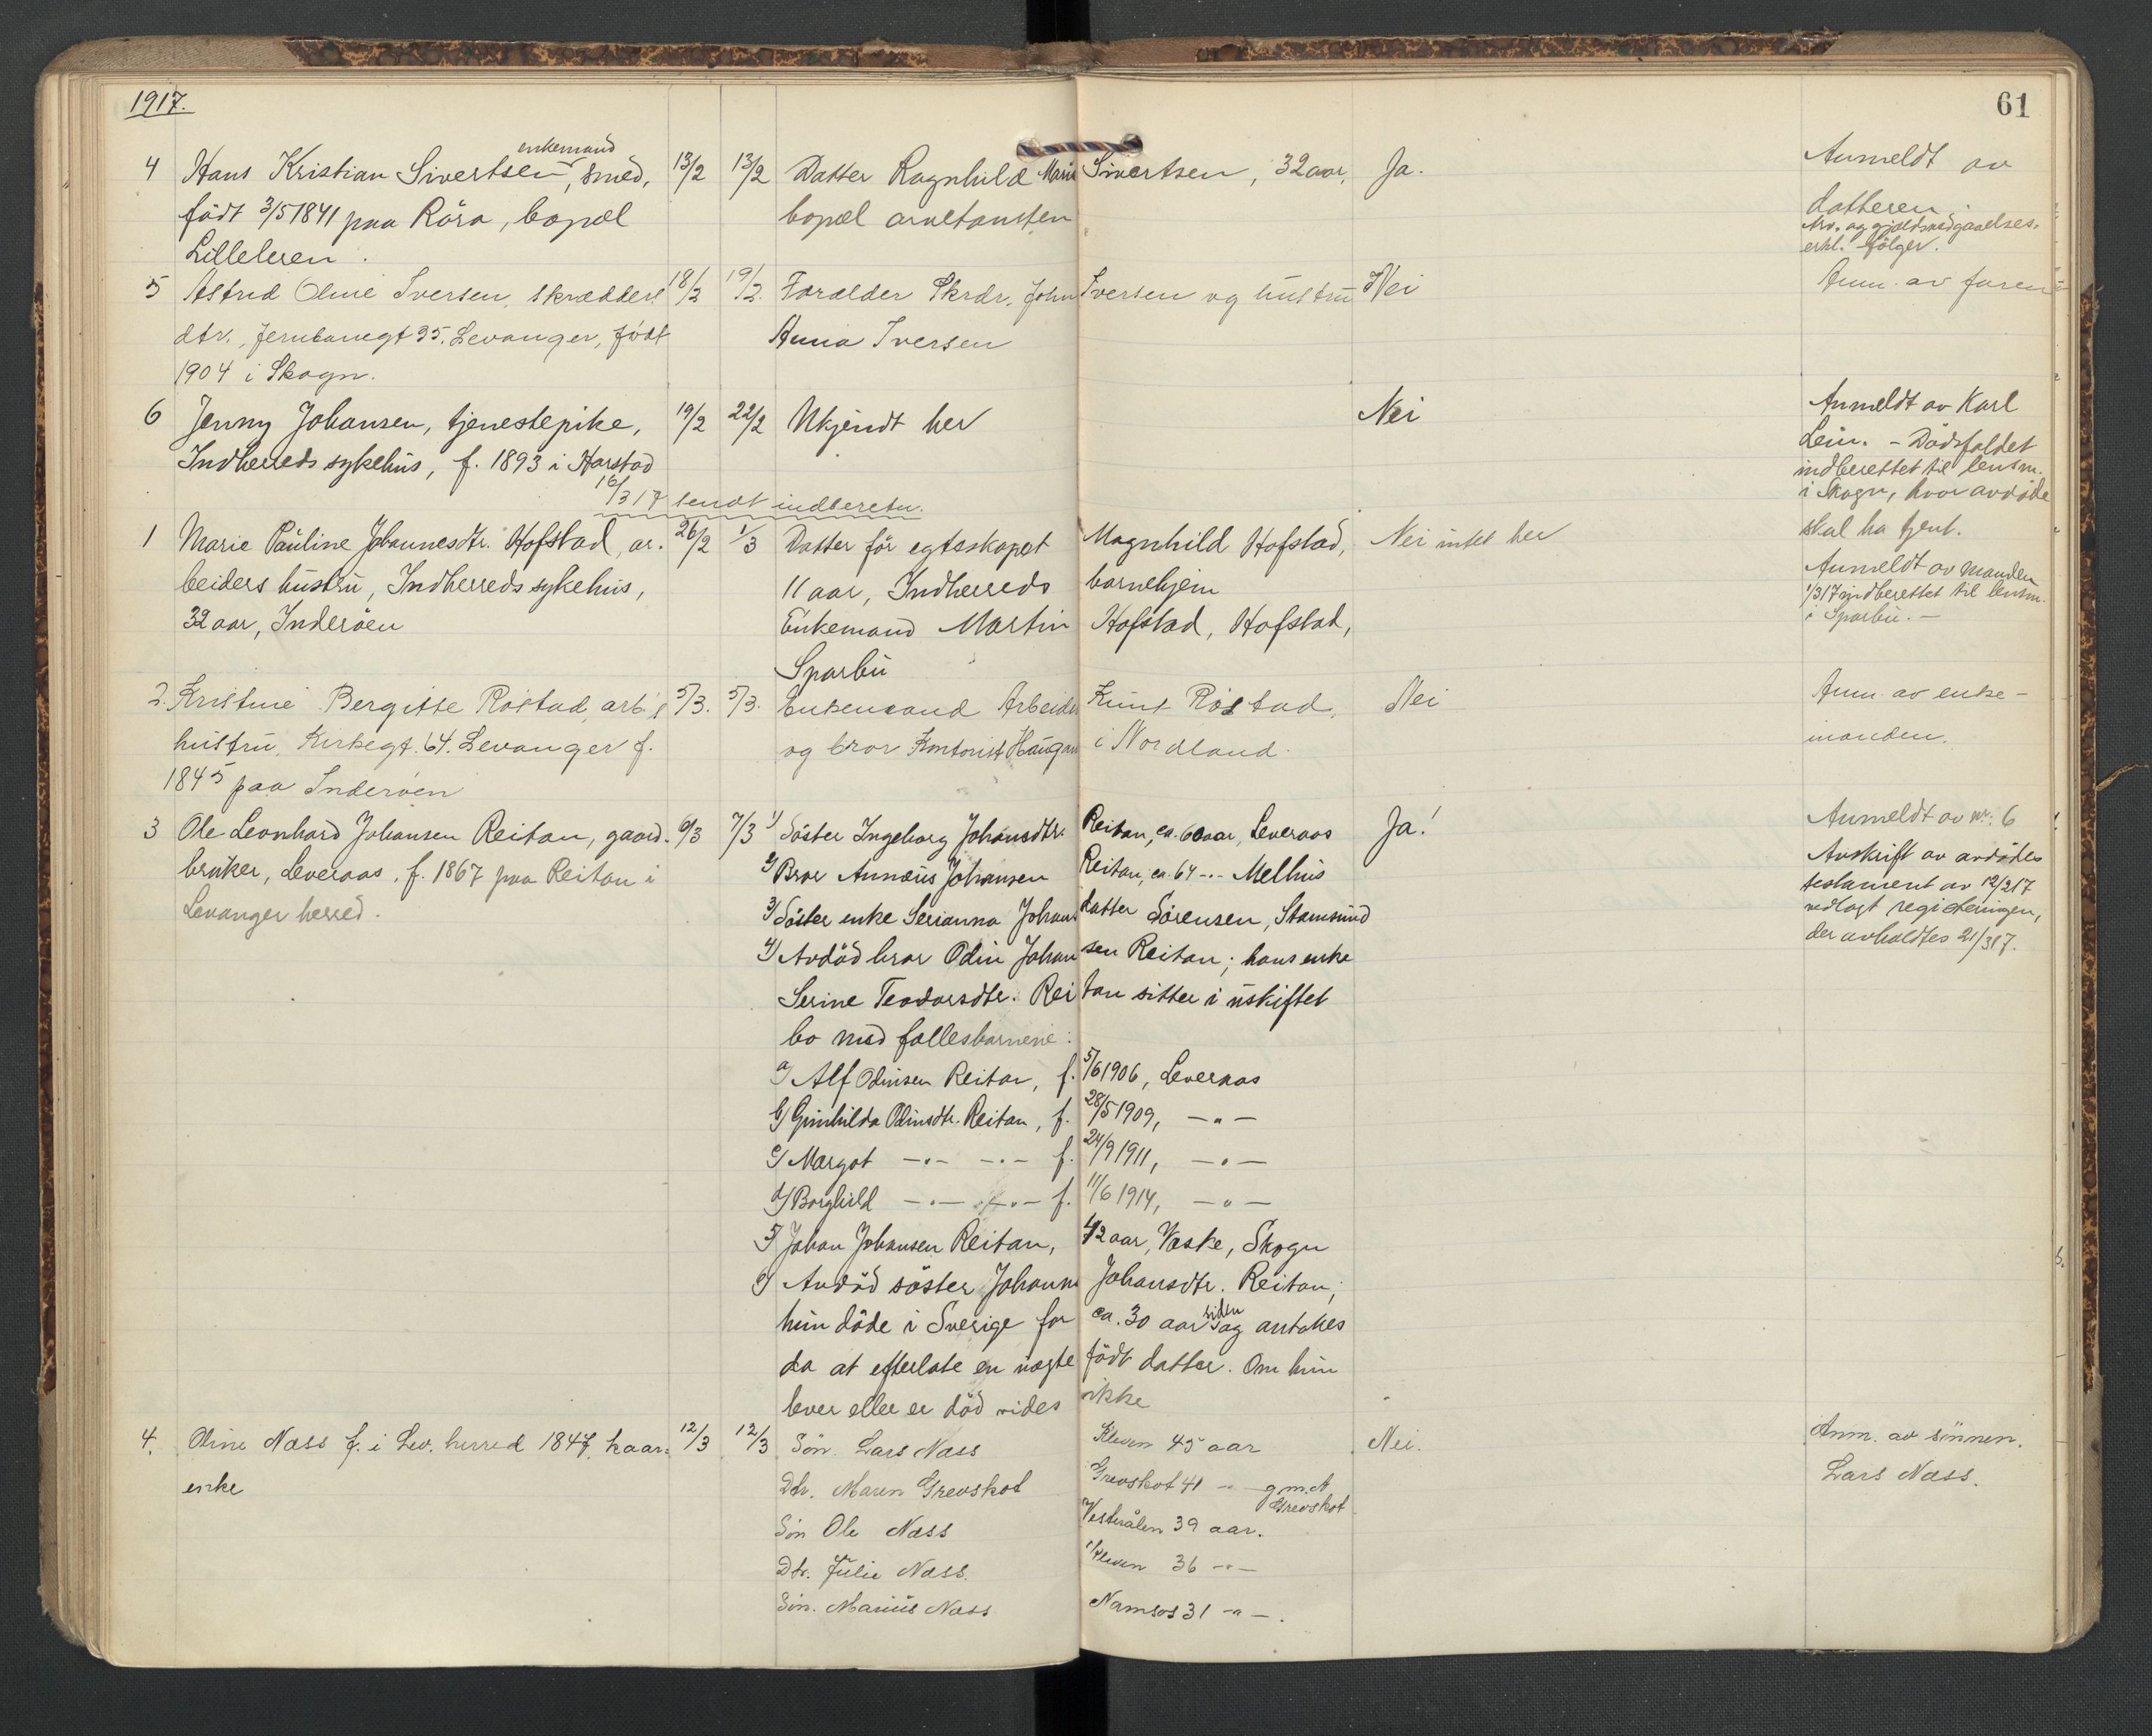 1917.
61
4 Hans Kristian Sivertsen, enkemand smed, 13/2 13/2 Datter Ragnhild Marie Sivertsen, 32 aar, Ja. Anmeldt av
födt 3/5 1841 paa Röra, bopæl bopæl arvetomten datteren.
Lilleleren. Arv. og gjældsvedgaaelses.
erkl. følger.
5 Astrid Oline Iversen, skrædders 18/2 19/2. Forælder Skrdr. John Iversen og hustru Nei Anm. av faren
dtr., Jernbanegt 35. Levanger, født Anna Iversen
1904 i Skogn.
6 Jenny Johansen, tjenestepike, 19/2 22/2 Ukjendt her Nei Anmeldt av Karl
Indherreds sykehus, f. 1893 i Harstad Lein. - Dødsfaldet
indberettet til lensm.
16/3 17 sendt indberetn. i Skogn, hvor avdøde
skal ha tjent.
1 Marie Pauline Johannesdtr. Hofstad, ar- 26/2 1/3 Datter för egteskapet Magnhild Hofstad, Nei intet her
beiders hustru, Indherreds sykehus, 11 aar, Indherreds barnehjem Anmeldt av manden
32 aar, Inderöen Enkemand Martin Hofstad, Hofstad, 1/3 17 indberettet til lensm.
Sparbu i Sparbu. -
2. Kristine Bergitte Röstad, arb.s 5/3. 5/3. Enkemand Arbeider Knut Röstad, Nei Anm. av enke-
hustru, Kirkegt. 64. Levanger f. og bror Kontorist Haugan i Nordland. manden.
1845 paa Inderøen
3 Ole Leonhard Johansen Reitan, gaard- 6/3 7/3 1/ Söster Ingeborg Johansdtr. Reitan, ca. 60 aar, Leveraas Ja! Anmeldt av nr. 6
bruker, Leveraas, f. 1867 paa Reitan i 2/ Bror Annæus Johansen Reitan, ca. 64 -"- Melhus Avskrift av avdødes
Levanger herred. 3/ Söster enke Serianna Johansdatter Sörensen, Stamsund testament av 12/2 17
4/ Avdöd bror Odin Johansen Reitan; hans enke vedlagt registreringen,
Serine Teodorsdtr. Reitan sitter i uskiftet der avholdtes 21/3 17.
bo med fællesbarnene:
a/ Alf Odinsen Reitan, f. 5/6 1906, Leveraas
b/ Gunhilda Odinsdtr. Reitan, f. 28/5 1909, -"-
c/ Margot -"- -"- f. 24/9 1911, -"-
d/ Borghild -"- -"- f. 11/6 1914, -"-
5/ Johan Johansen Reitan, 42 aar, Væske, Skogn
6/ Avdöd söster Johanna Johansdtr. Reitan;
hun döde i Sverige for ca. 30 aar siden og antakes
da at efterlate en uægte født datter. Om hun
lever eller er död vides ikke
4. Oline Næss f. i Lev. herred 1847, kaar- 12/3 12/3 Sön Lars Næss Kleven 45 aar Nei. Anm. av sönnen.
enke Dtr. Maren Grevskot Grevskot 41 -"- g.m. A Grevskot Lars Næss.
Sön Ole Næss Vesterålen 39 aar.
Dtr. Julie Næss. Kleven 36 -"-
Sön. Marius Næss Namsos 31 -"-.